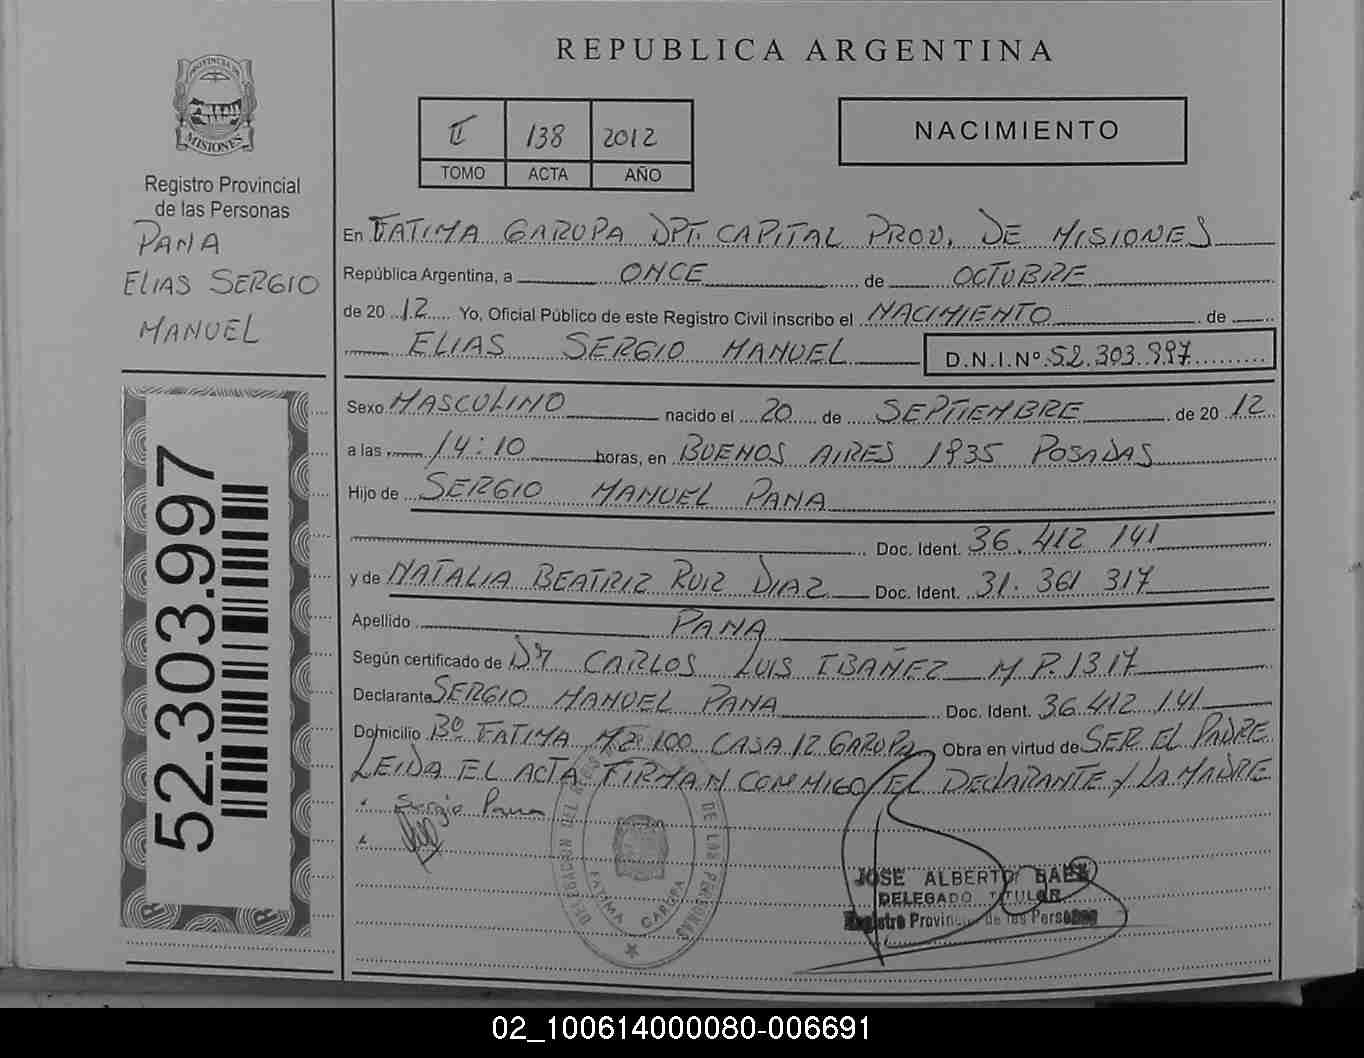 REPUBLICA ARGENTINA
PROVINCIA DE
MISIONES
Registro Provincial
de las Personas
PANA
ELIAS SERGIO
MANUEL
52.303.997
II 138 2012
TOMO ACTA AÑO
NACIMIENTO
En FATIMA GARUPA DPT. CAPITAL PROV. DE MISIONES
República Argentina, a ONCE de OCTUBRE
de 20 12 Yo, Oficial Público de este Registro Civil inscribo el NACIMIENTO de
ELIAS SERGIO MANUEL D.N.I.Nº 52.303.997
Sexo MASCULINO nacido el 20 de SEPTIEMBRE de 20 12
a las 14:10 horas, en BUENOS AIRES 1935 POSADAS
Hijo de SERGIO MANUEL PANA
Doc. Ident. 36.412 141
y de NATALIA BEATRIZ RUIZ DIAZ Doc. Ident. 31.361 317
Apellido PANA
Según certificado de Dr CARLOS LUIS IBAÑEZ M.P. 1317
Declarante SERGIO MANUEL PANA Doc. Ident. 36.412 141
Domicilio Bº FATIMA MZ 100 CASA 12 GARUPA Obra en virtud de SER EL PADRE
LEIDA EL ACTA FIRMAN CONMIGO EL DECLARANTE Y LA MADRE
Sergio Pana
DELEGACION DEL DE LAS PERSONAS
FATIMA GARUPA
JOSE ALBERTO BAEZ
DELEGADO TITULAR
Registro Provincial de las Personas
02_100614000080-006691